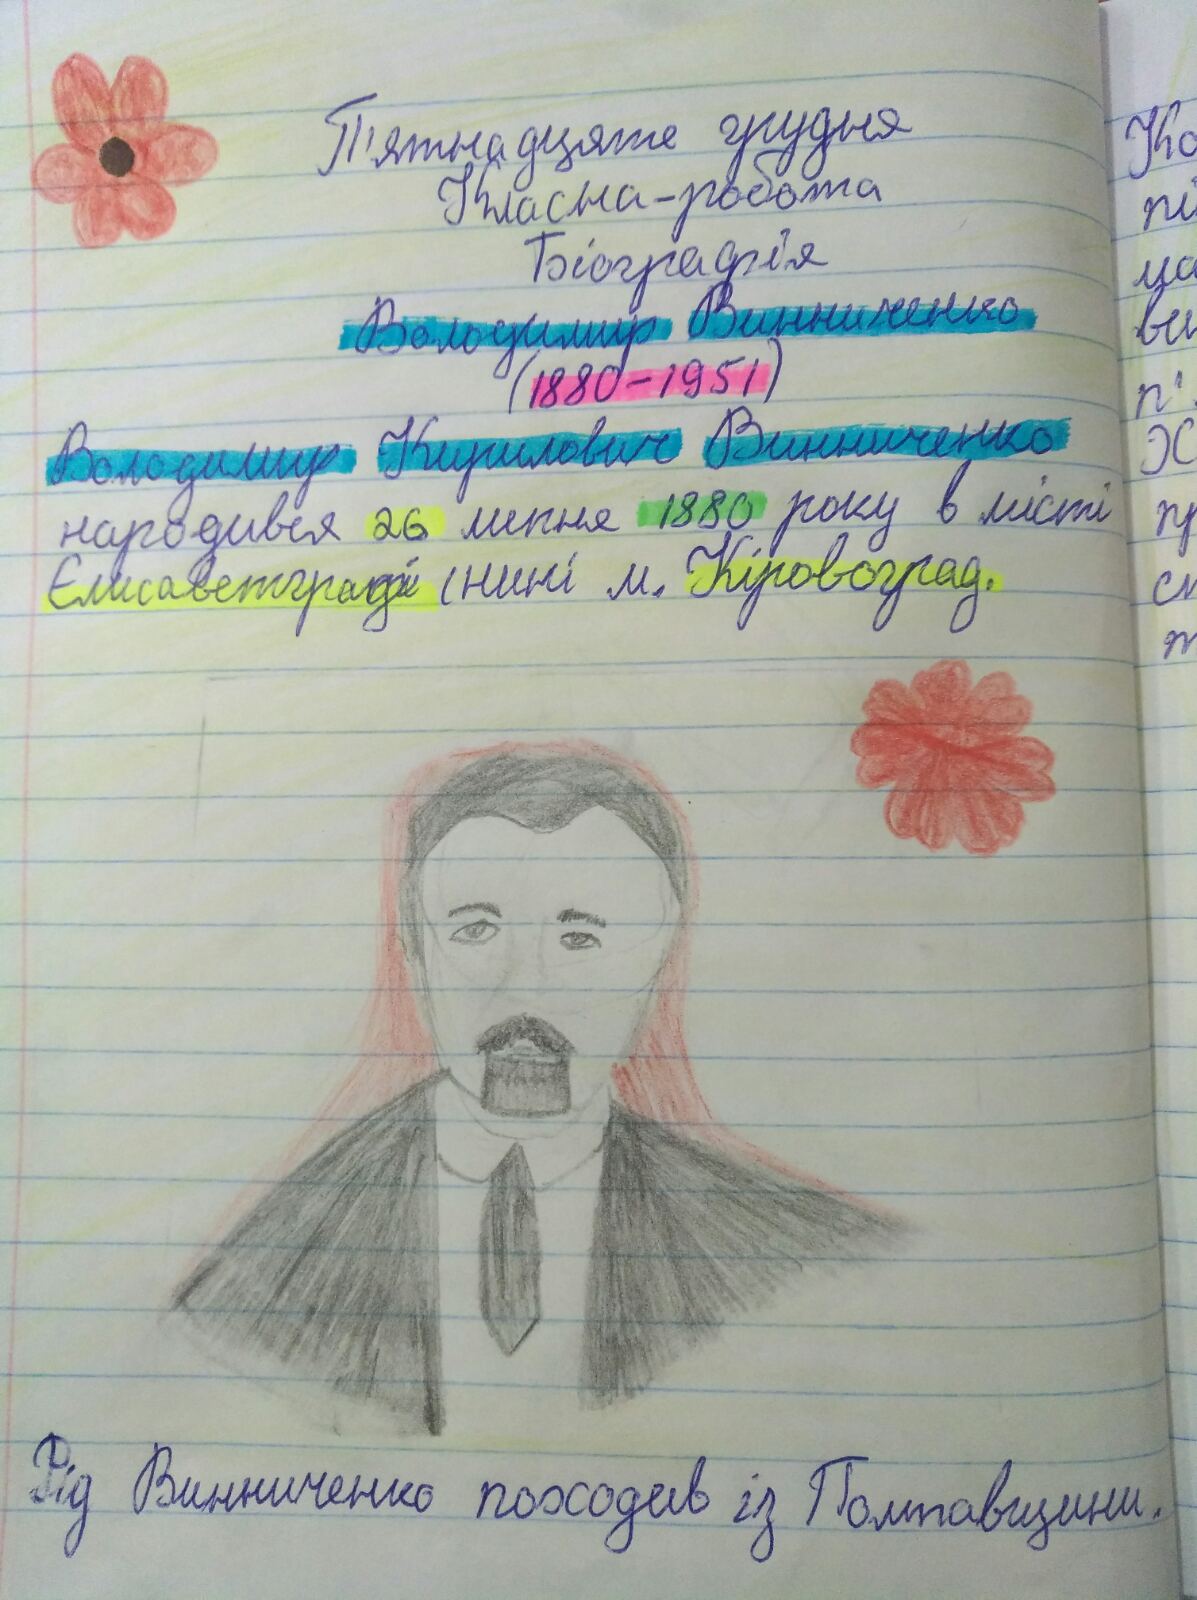 П'ятнадцяте грудня
Класна-робота
Біографія
Володимир Винниченко
(1880-1951)
Володимир Кирилович Винниченко
народився 26 липня 1880 року в місті
Єлисаветграді (нині м. Кіровоград.
Рід Винниченко походив із Полтавщини.